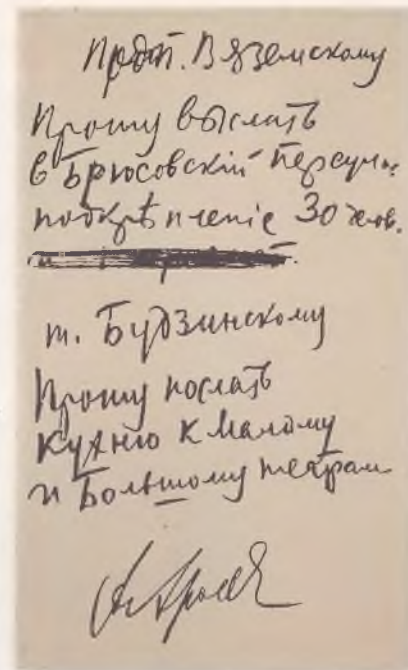 Вяземскому
Прошу выслать
в Брюсовскій
подкрѣпленіе 30 челов.
т. Будзинскому
Прошу послать
кухню к Малому
и Большому театрам